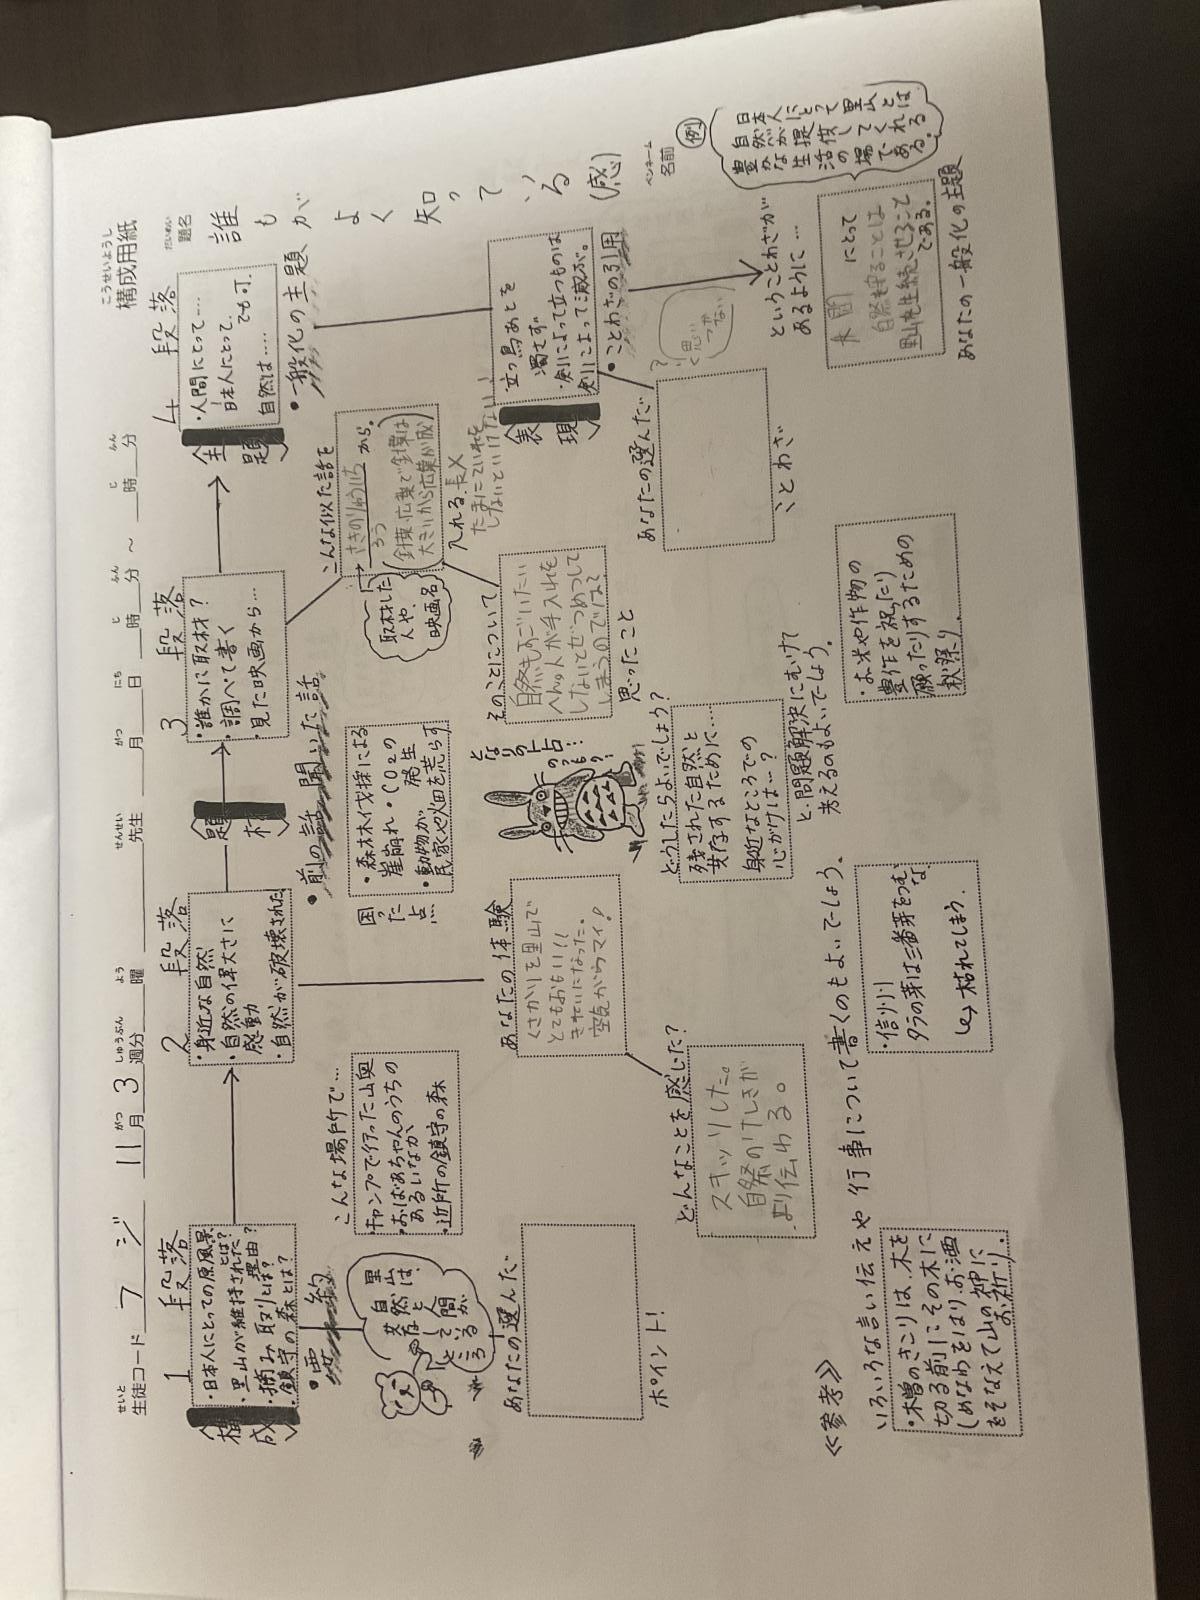 構成用紙
こうせいようし
生徒コード フジ 11月3週分 曜 先生 月 日 時 分 ～ 時 分
せいと がつ しゅうぶん よう せんせい がつ にち じ ふん じ ふん
題名
だいめい
誰もがよく知っている(感)
名前
ペンネーム
1段落
構成
・日本人にとっての原風景とは?
・里山が維持された理由?
・摘み取りとは?
・鎮守の森とは?
・要約
里山は、
自然と人間が
交流しているところ
こんな場所で…
・キャンプで行った山奥
・おばあちゃんのうちの
あるいなか
・近所の鎮守の森
あなたの選んだ
ポイント!
2段落
・身近な自然!
・自然の偉大さに
感動
・自然が破壊された
題材
・前の話 聞いた話
困った点
・森林木伐採による
崖崩れ・CO2の
発生
・動物が
民家や畑を荒らす
あなたの体験
くさかりを里山で
とてもおもい!!
きれいになった。
空気がウマイ!
どんなことを感じた?
スキッリした。
自然のけしきが
より伝わる。
となりのトトロ…
3段落
・誰かに取材?
・調べて書く
・見た映画から…
こんな似た話を
から。
針葉・広葉で針葉は
大きいから広葉が
入れる.長×
たまにていれを
しないといけない
取材した
人や、
映画名
そのことについて
自然もすごいたい
へん。人が手入れを
しないとぜつめつして
しまうのでは?
思ったこと
どうしたらよいでしょう?
残された自然と
共存するために……
身近なところでの
心がけは…?
と、問題解決にむけて
考えるのもよいでしょう。
4段落
主題
・人間にとって…
日本人にとって、
でも可。
自然は……
・一般化の主題
表現
立つ鳥あとを
濁さず
・剣によって立つものは
剣によって滅ぶ。
・ことわざの引用
あなたの選んだ
ことわざ
?
思い
つかない
ということわざが
あるように…
人間 にとって
自然を守ることは
里山を生続させること
である。
あなたの一般化の主題
例
日本人にとって里山とは
自然が提供してくれる
豊かな生活の場である。
≪参考≫
いろいろな言い伝えや行事について書くのもよいでしょう。
・木曽のきこりは、木を
切る前にその木に
しめなわをはり、お酒
をそなえて山の神に
お祈り.
・信州
タラの芽は三番芽をつむな
↳枯れてしまう.
・お米や作物の
豊作を祝ったり
願ったりするための
秋祭り.